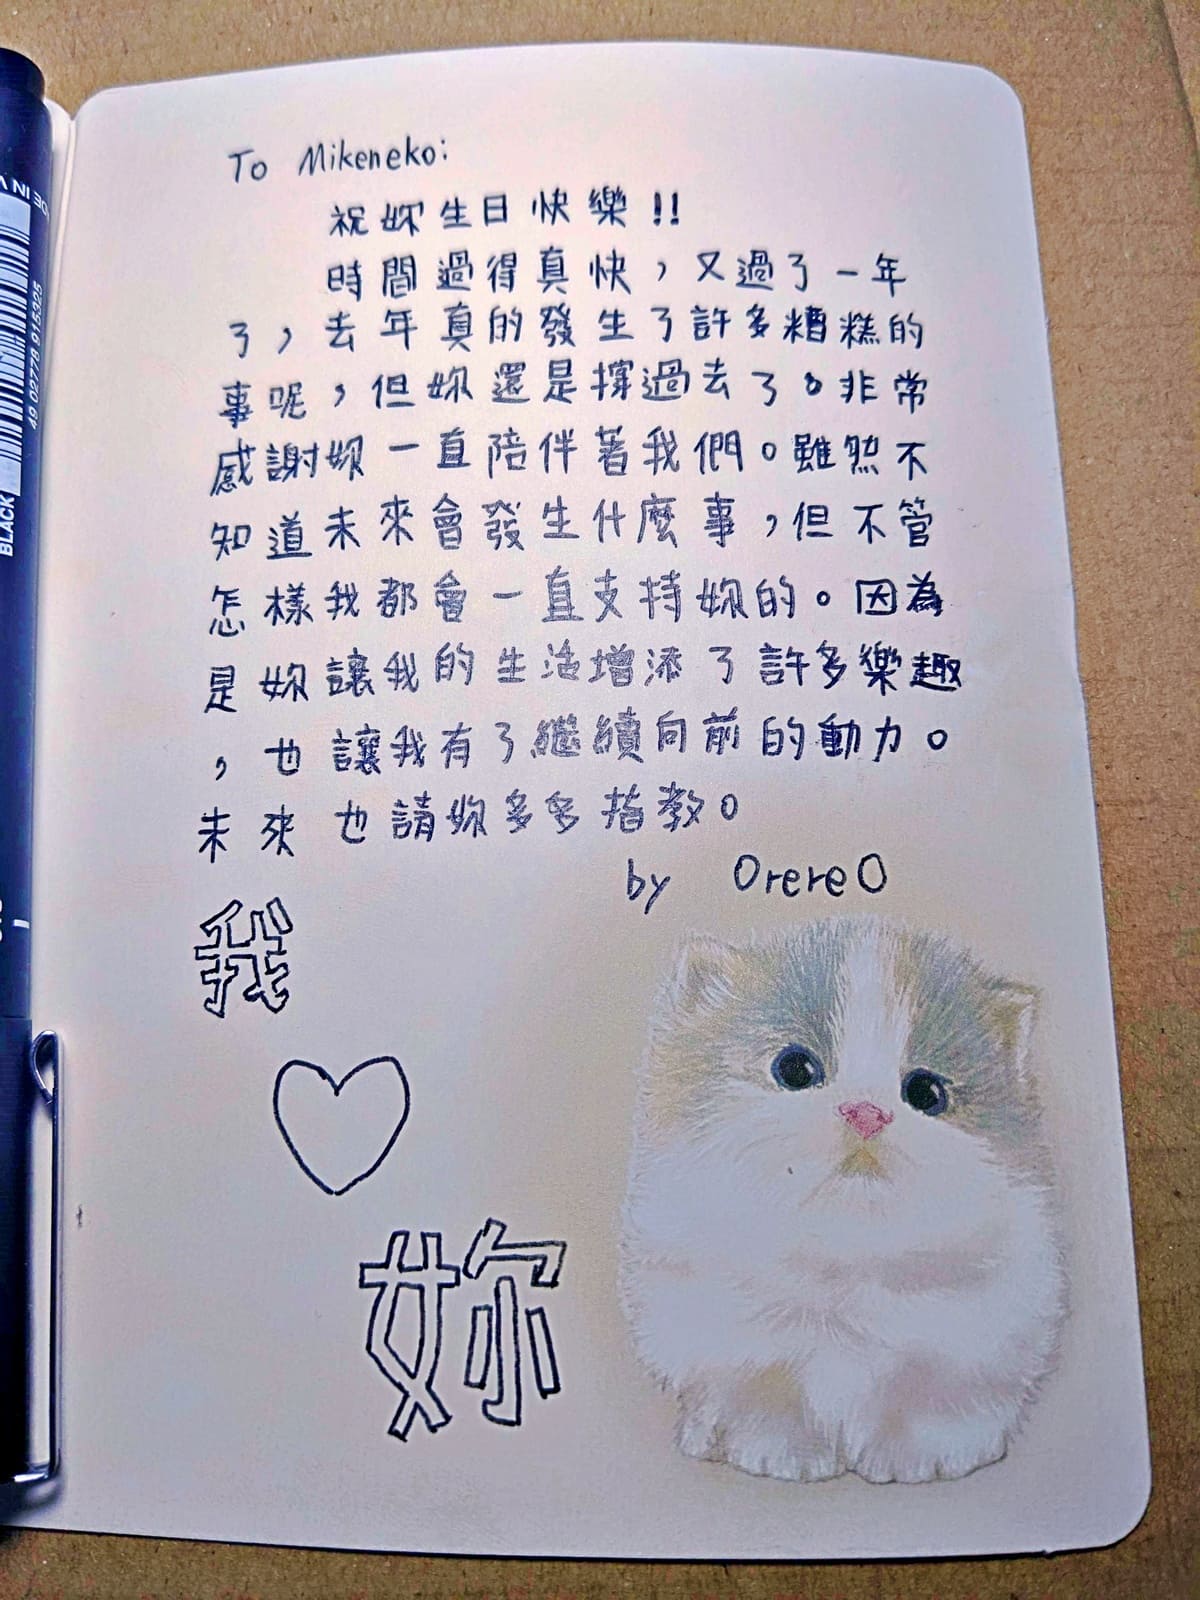 To Mikeneko:
祝妳生日快樂!!
時間過得真快，又過了一年
了，去年真的發生了許多糟糕的
事呢，但妳還是撐過去了。非常
感謝妳一直陪伴著我們。雖然不
知道未來會發生什麼事，但不管
怎樣我都會一直支持妳的。因為
是妳讓我的生活增添了許多樂趣
，也讓我有了繼續向前的動力。
未來也請妳多多指教。
by OrereO
我
妳
BLACK
49 02778 915325